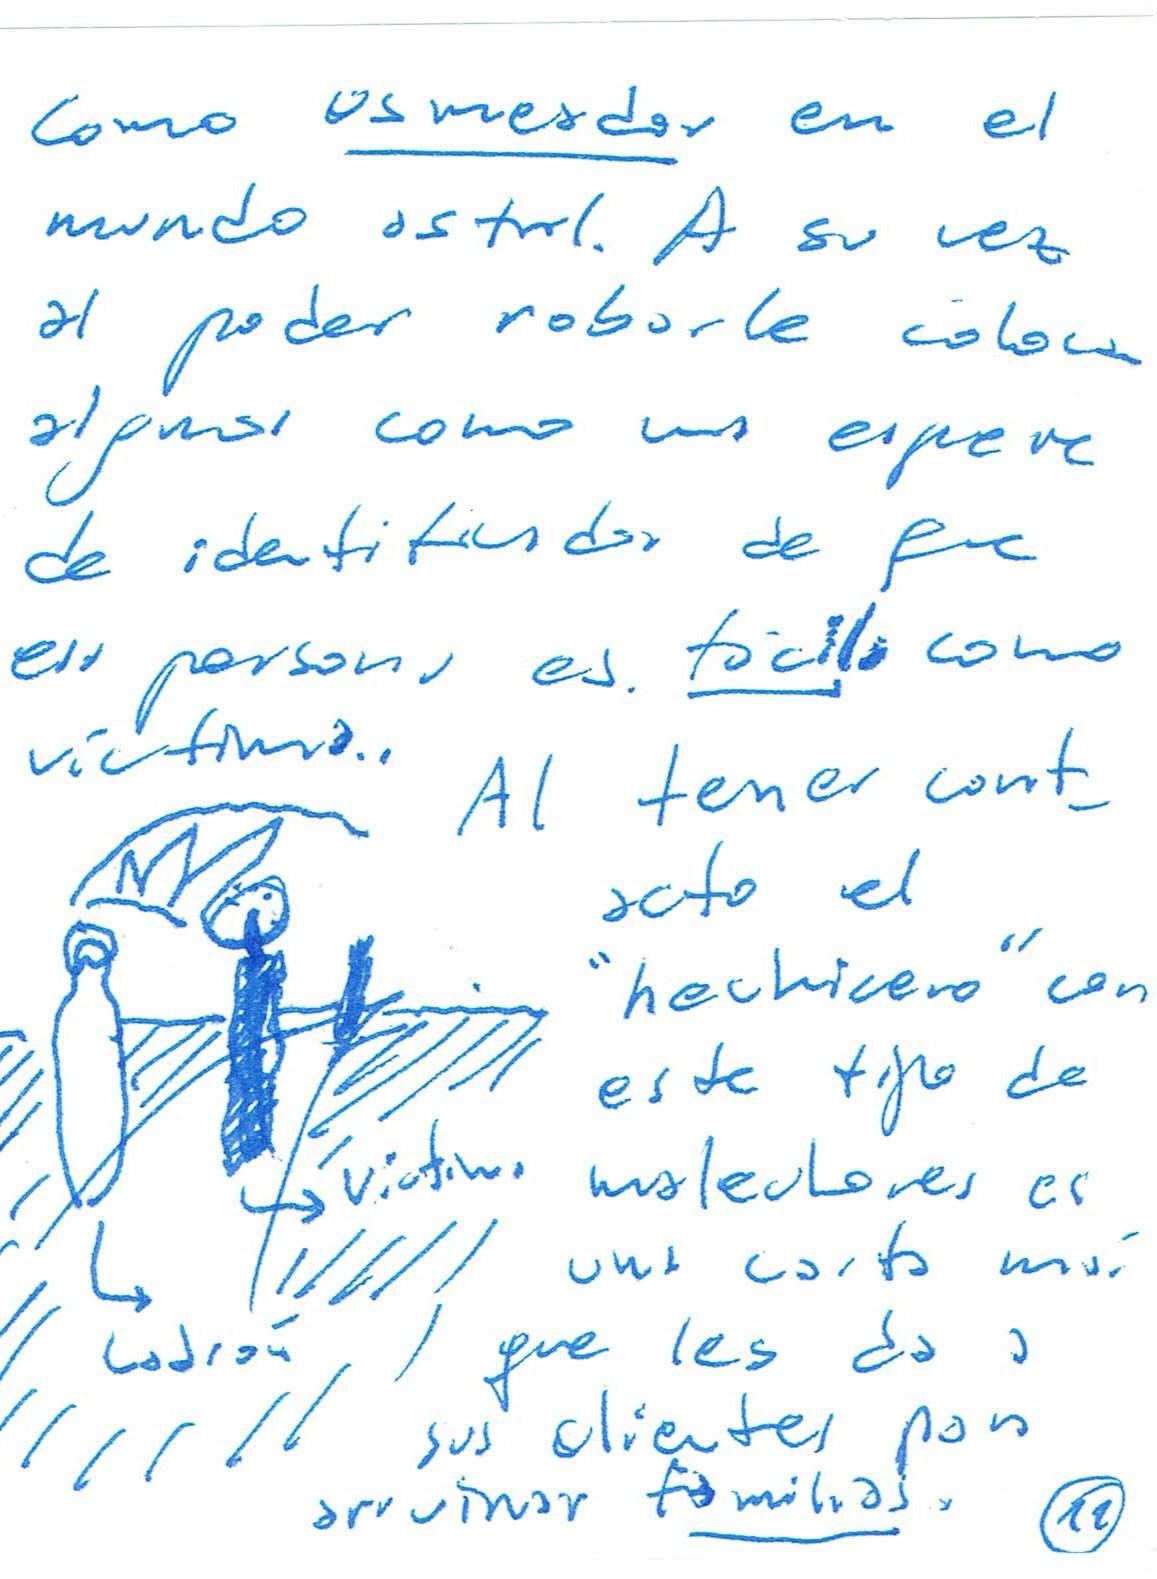 como osmeador en el
mundo astral. A su vez
al poder robarle coloca
algunas como una especie
de identificador de que
esa persona es. fácil como
víctima..
Al tener cont_
acto el
"hechicero" con
este tipo de
malechores es
una carta más
que les da a
sus clientes para
arruinar familias.
víctima
Ladrón